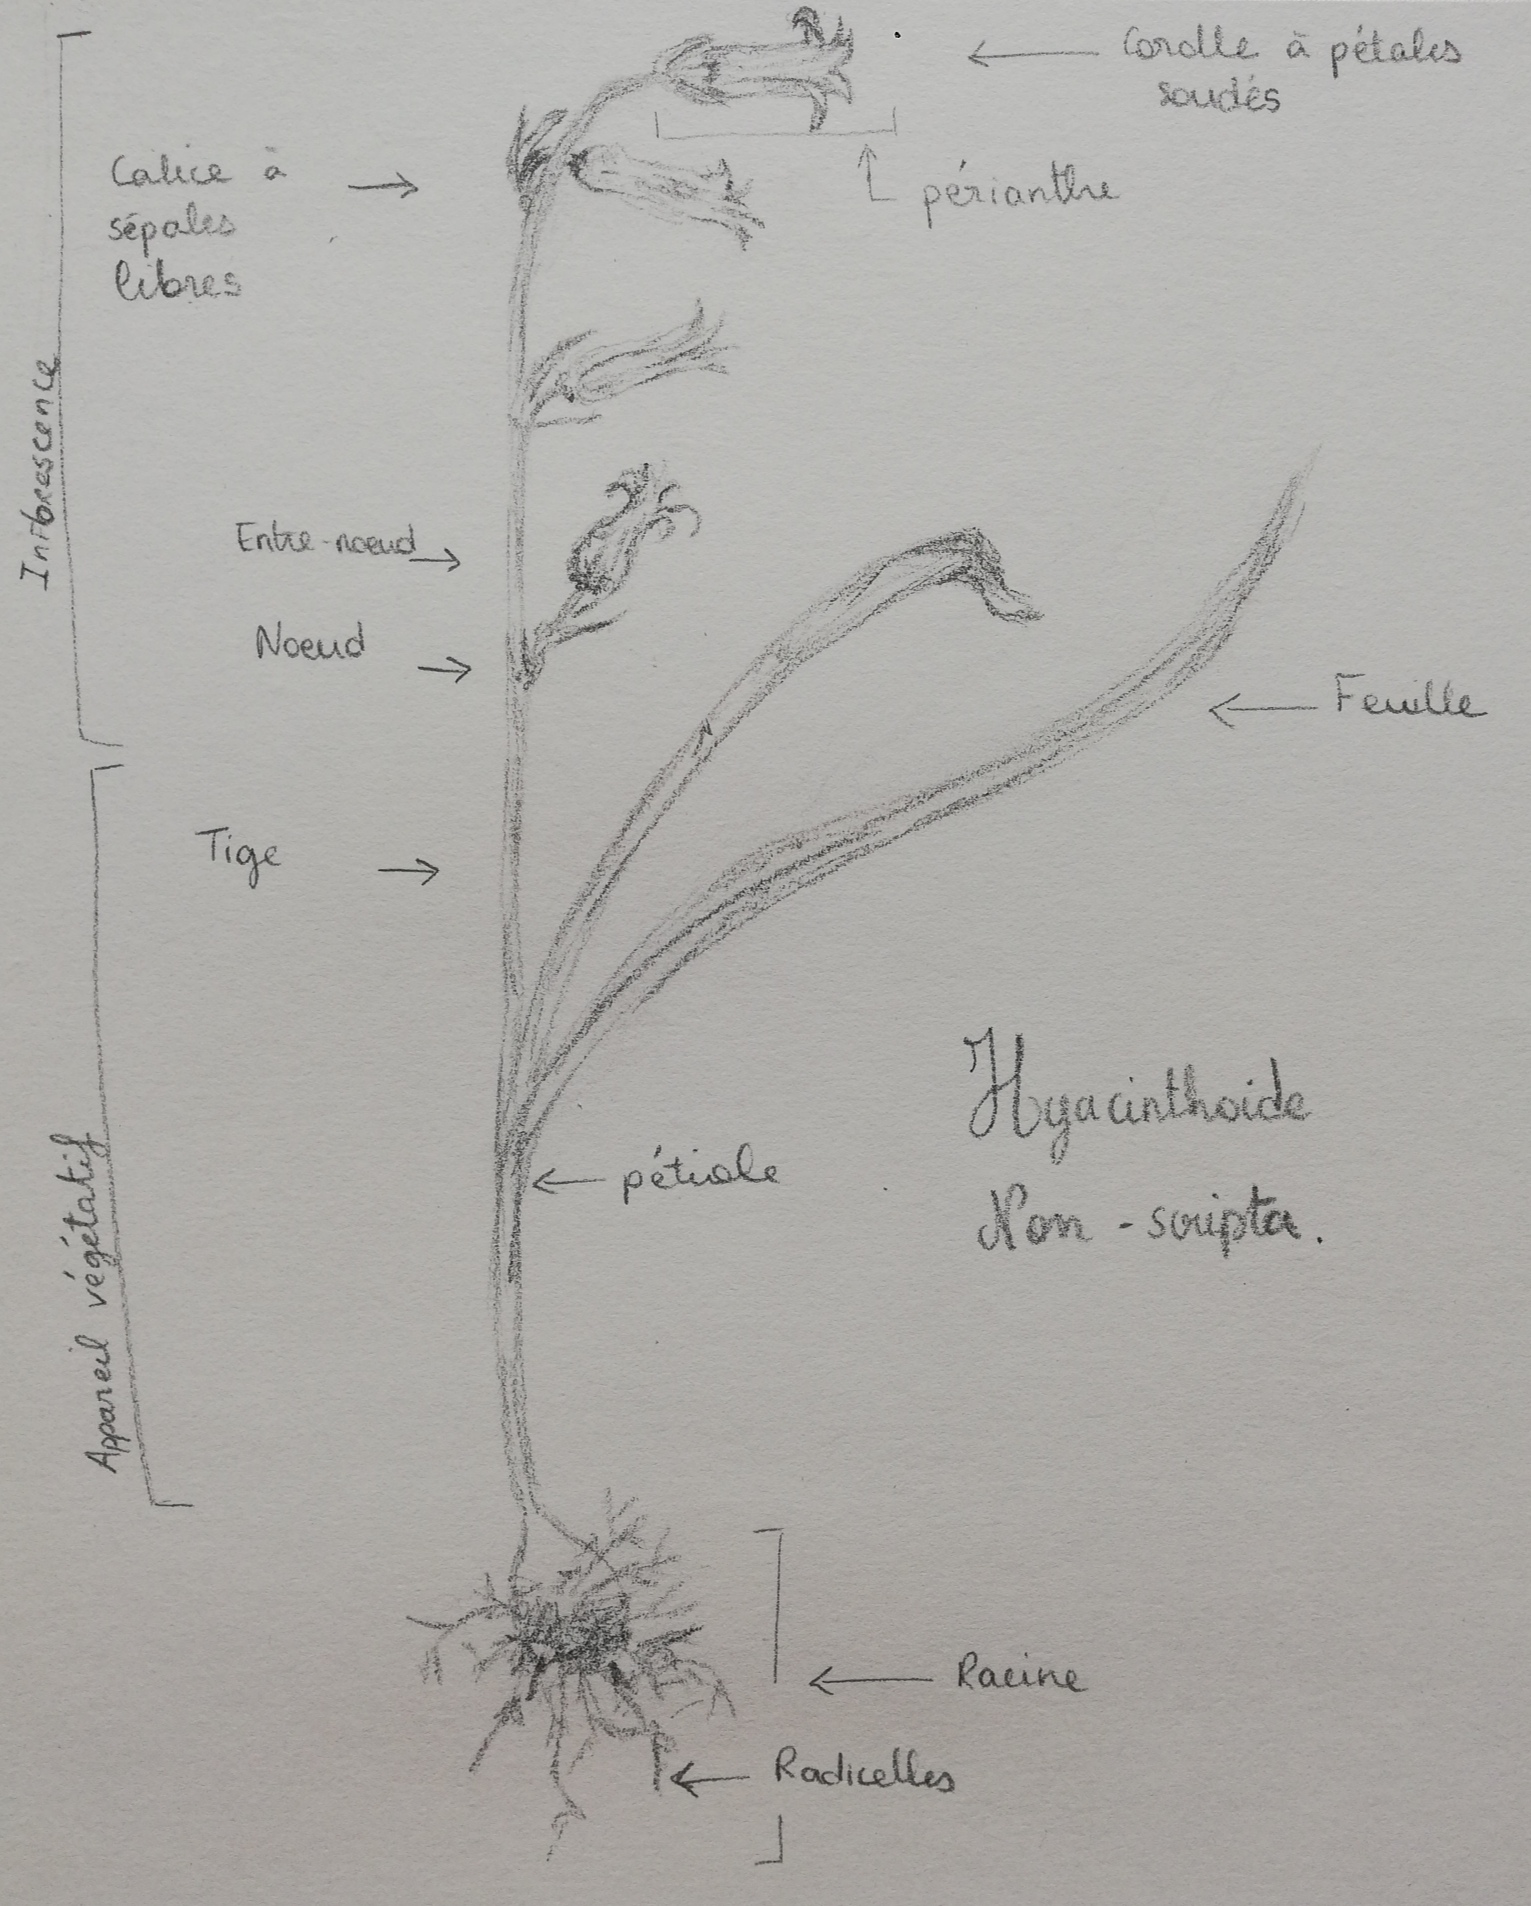 Corolle à pétales
soudés
Calice à
sépales
libres
périanthe
Inflorescence
Entre-noeud
Noeud
Feuille
Tige
Hyacinthoide
Non-scripta.
pétiole
Appareil végétatif
Racine
Radicelles